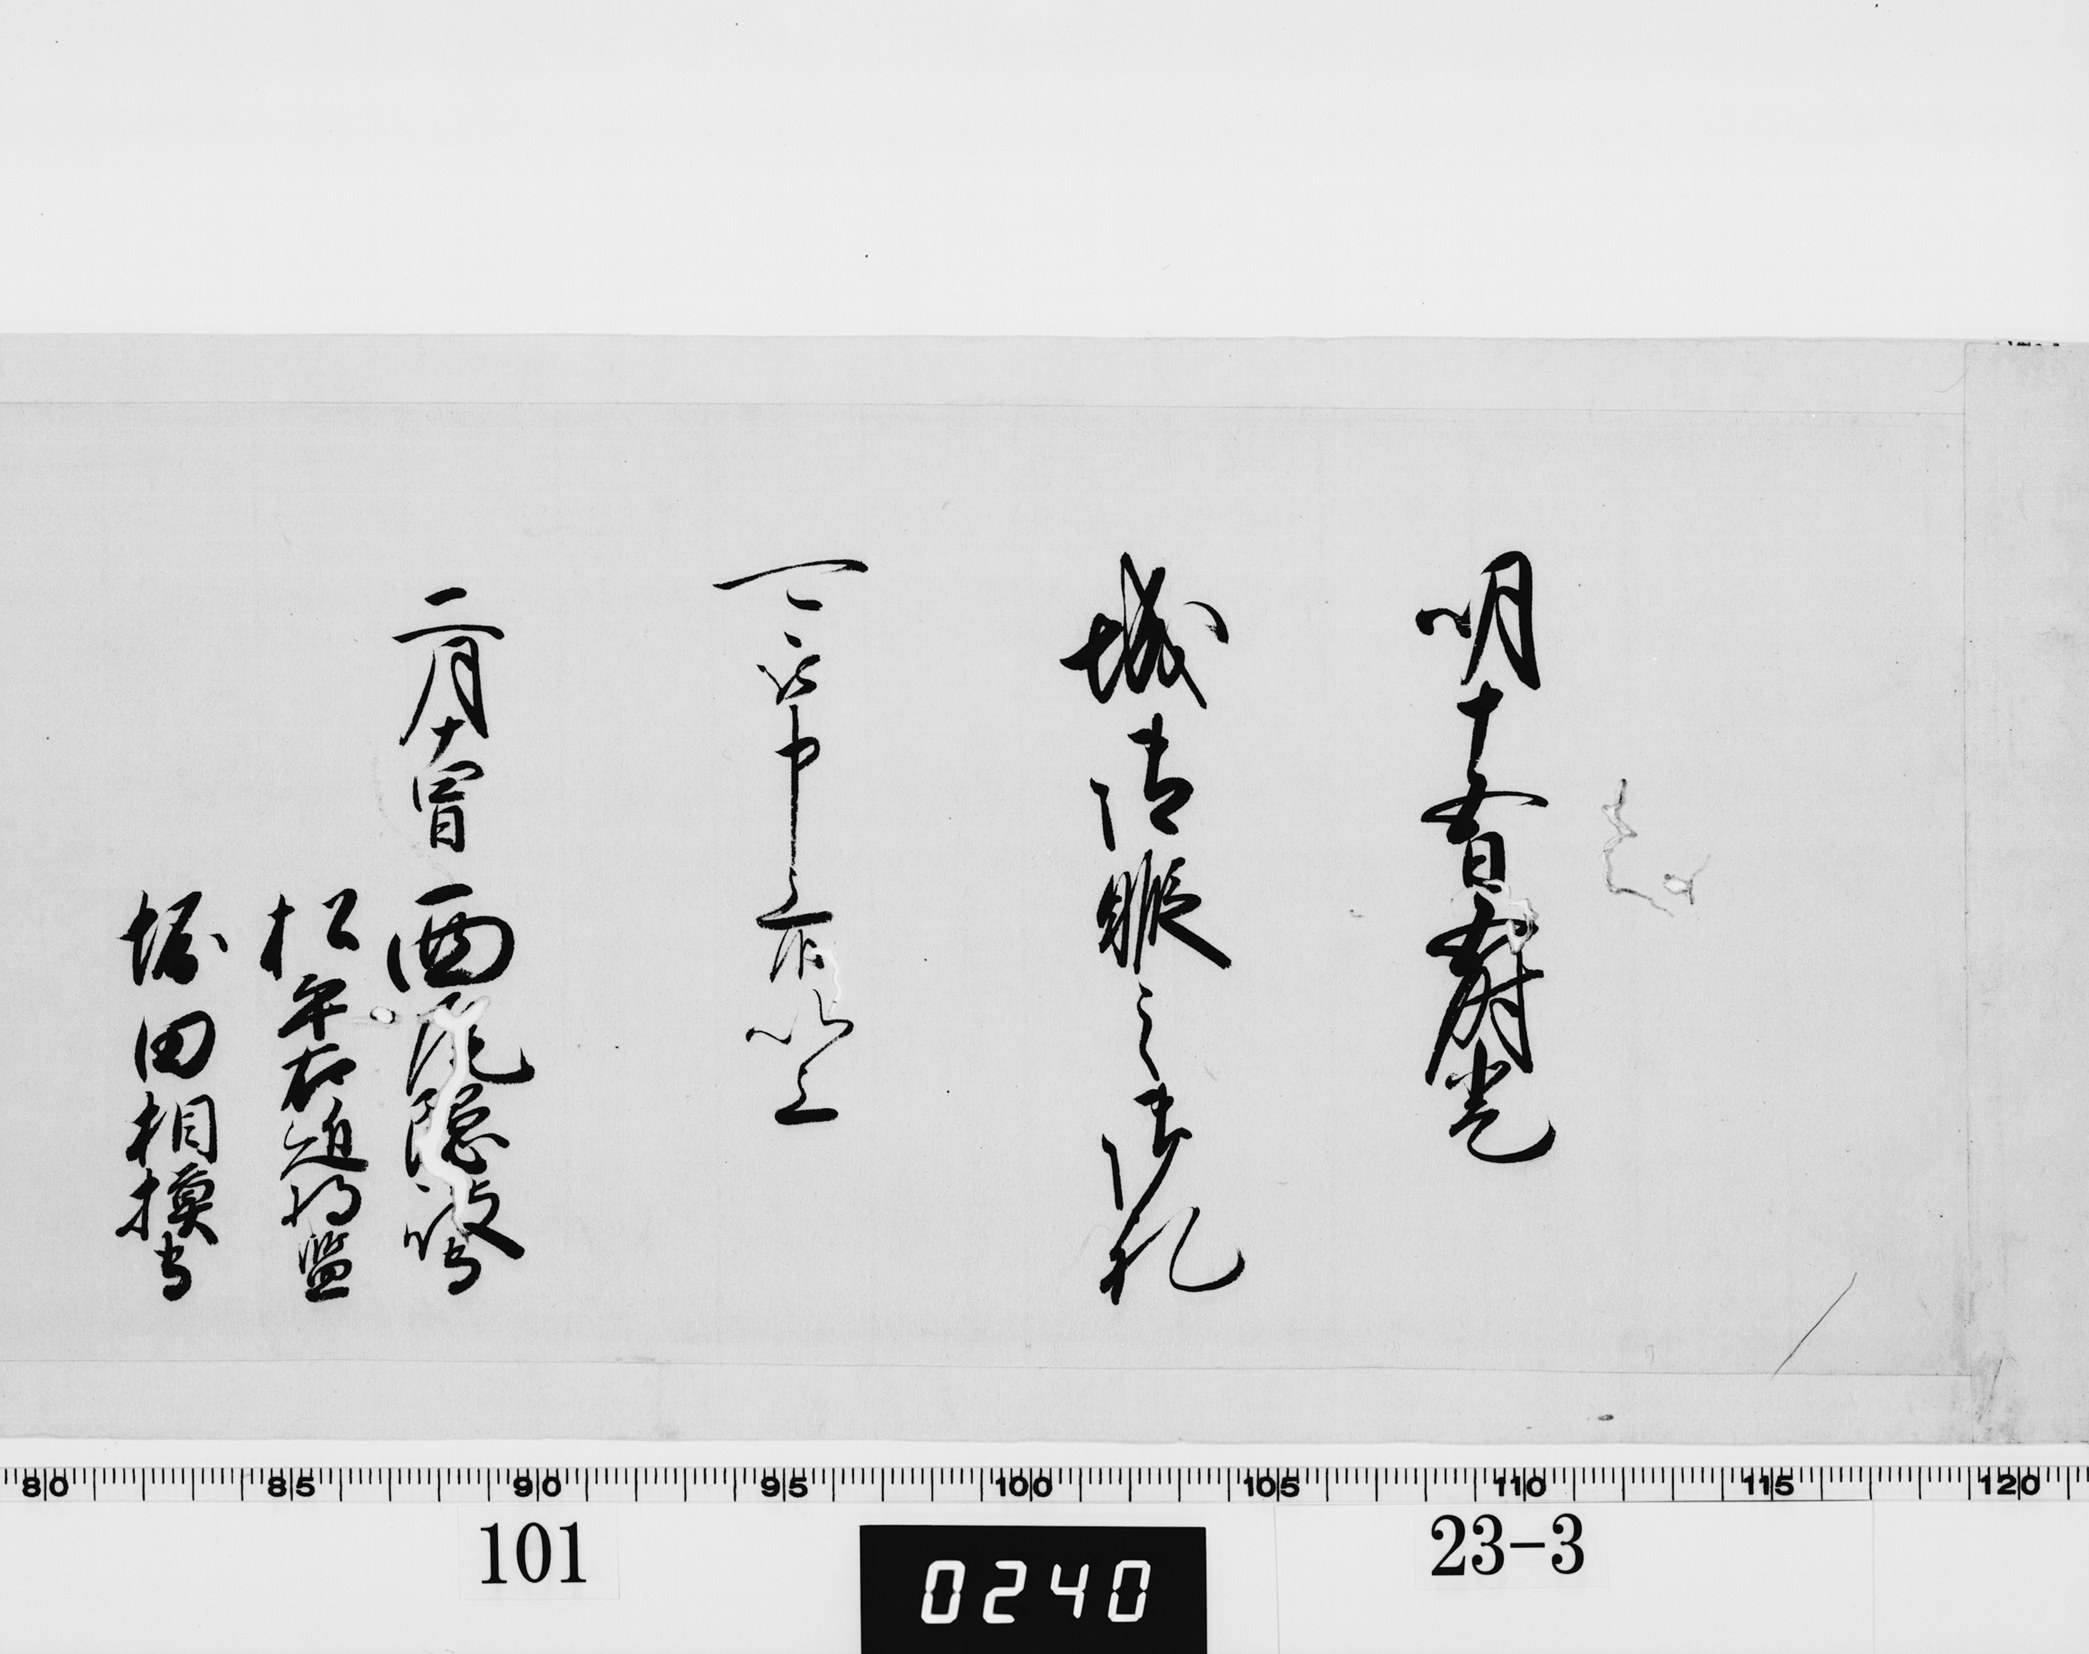 明十五日五時登
城御暇之御礼
可被申上候以上
二月十四日 西尾隠岐守
松平右近将監
堀田相模守
80 85 90 95 100 105 110 115 120
101 0240 23-3